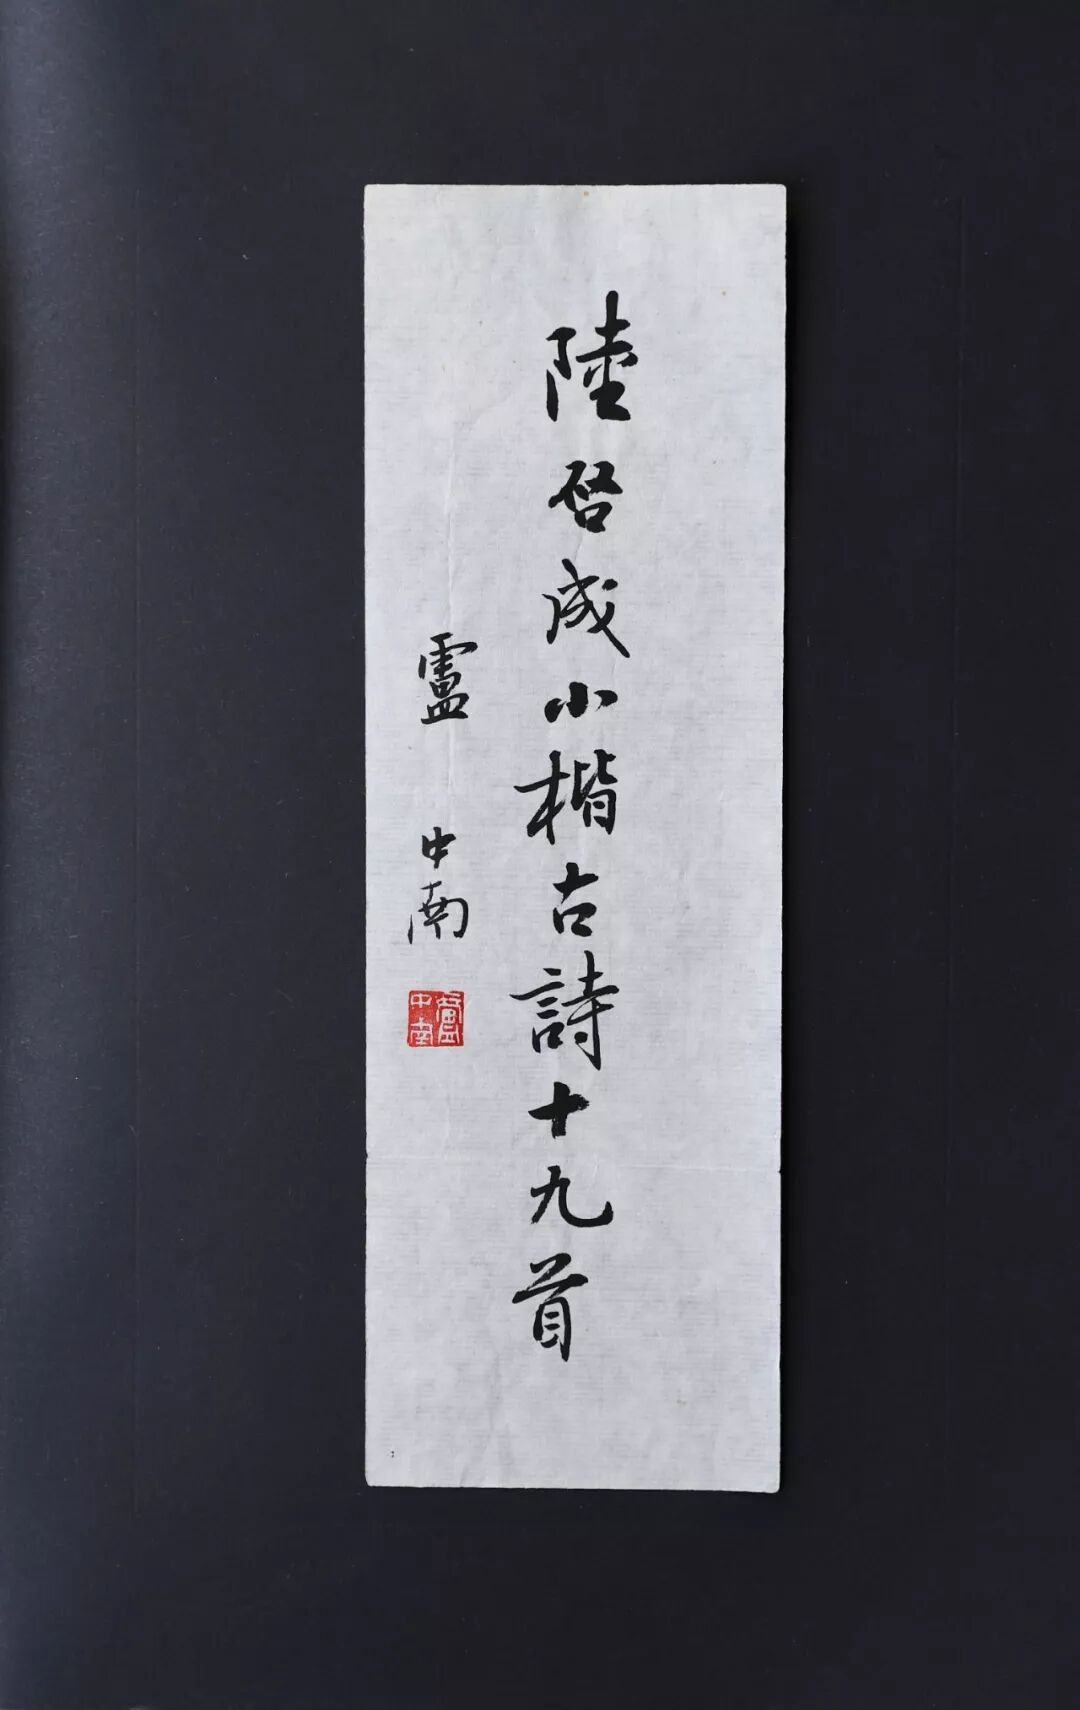 陸啓成小楷古詩十九首
盧中南
盧中南